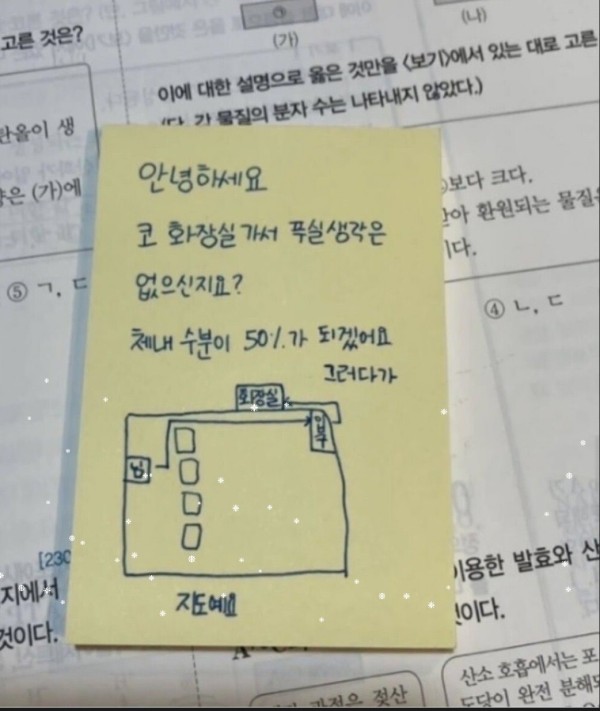 고른 것은?
(가)
(나)
이에 대한 설명으로 옳은 것만을 <보기>에서 있는 대로 고른
(단, 각 물질의 분자 수는 나타내지 않았다.)
란올이 생
(가)에
보다 크다.
아 환원되는 물질은
이다.
⑤ ㄱ, ㄷ
④ ㄴ, ㄷ
안녕하세요
코 화장실가서 푸실생각은
없으신지요?
체내 수분이 50%가 되겠어요
그러다가
화장실
입구
님
지도예요
[230
지에서
것이다.
이용한 발효와 산
것이다.
과정은 젖산
산소 호흡에서는 포
도당이 완전 분해되